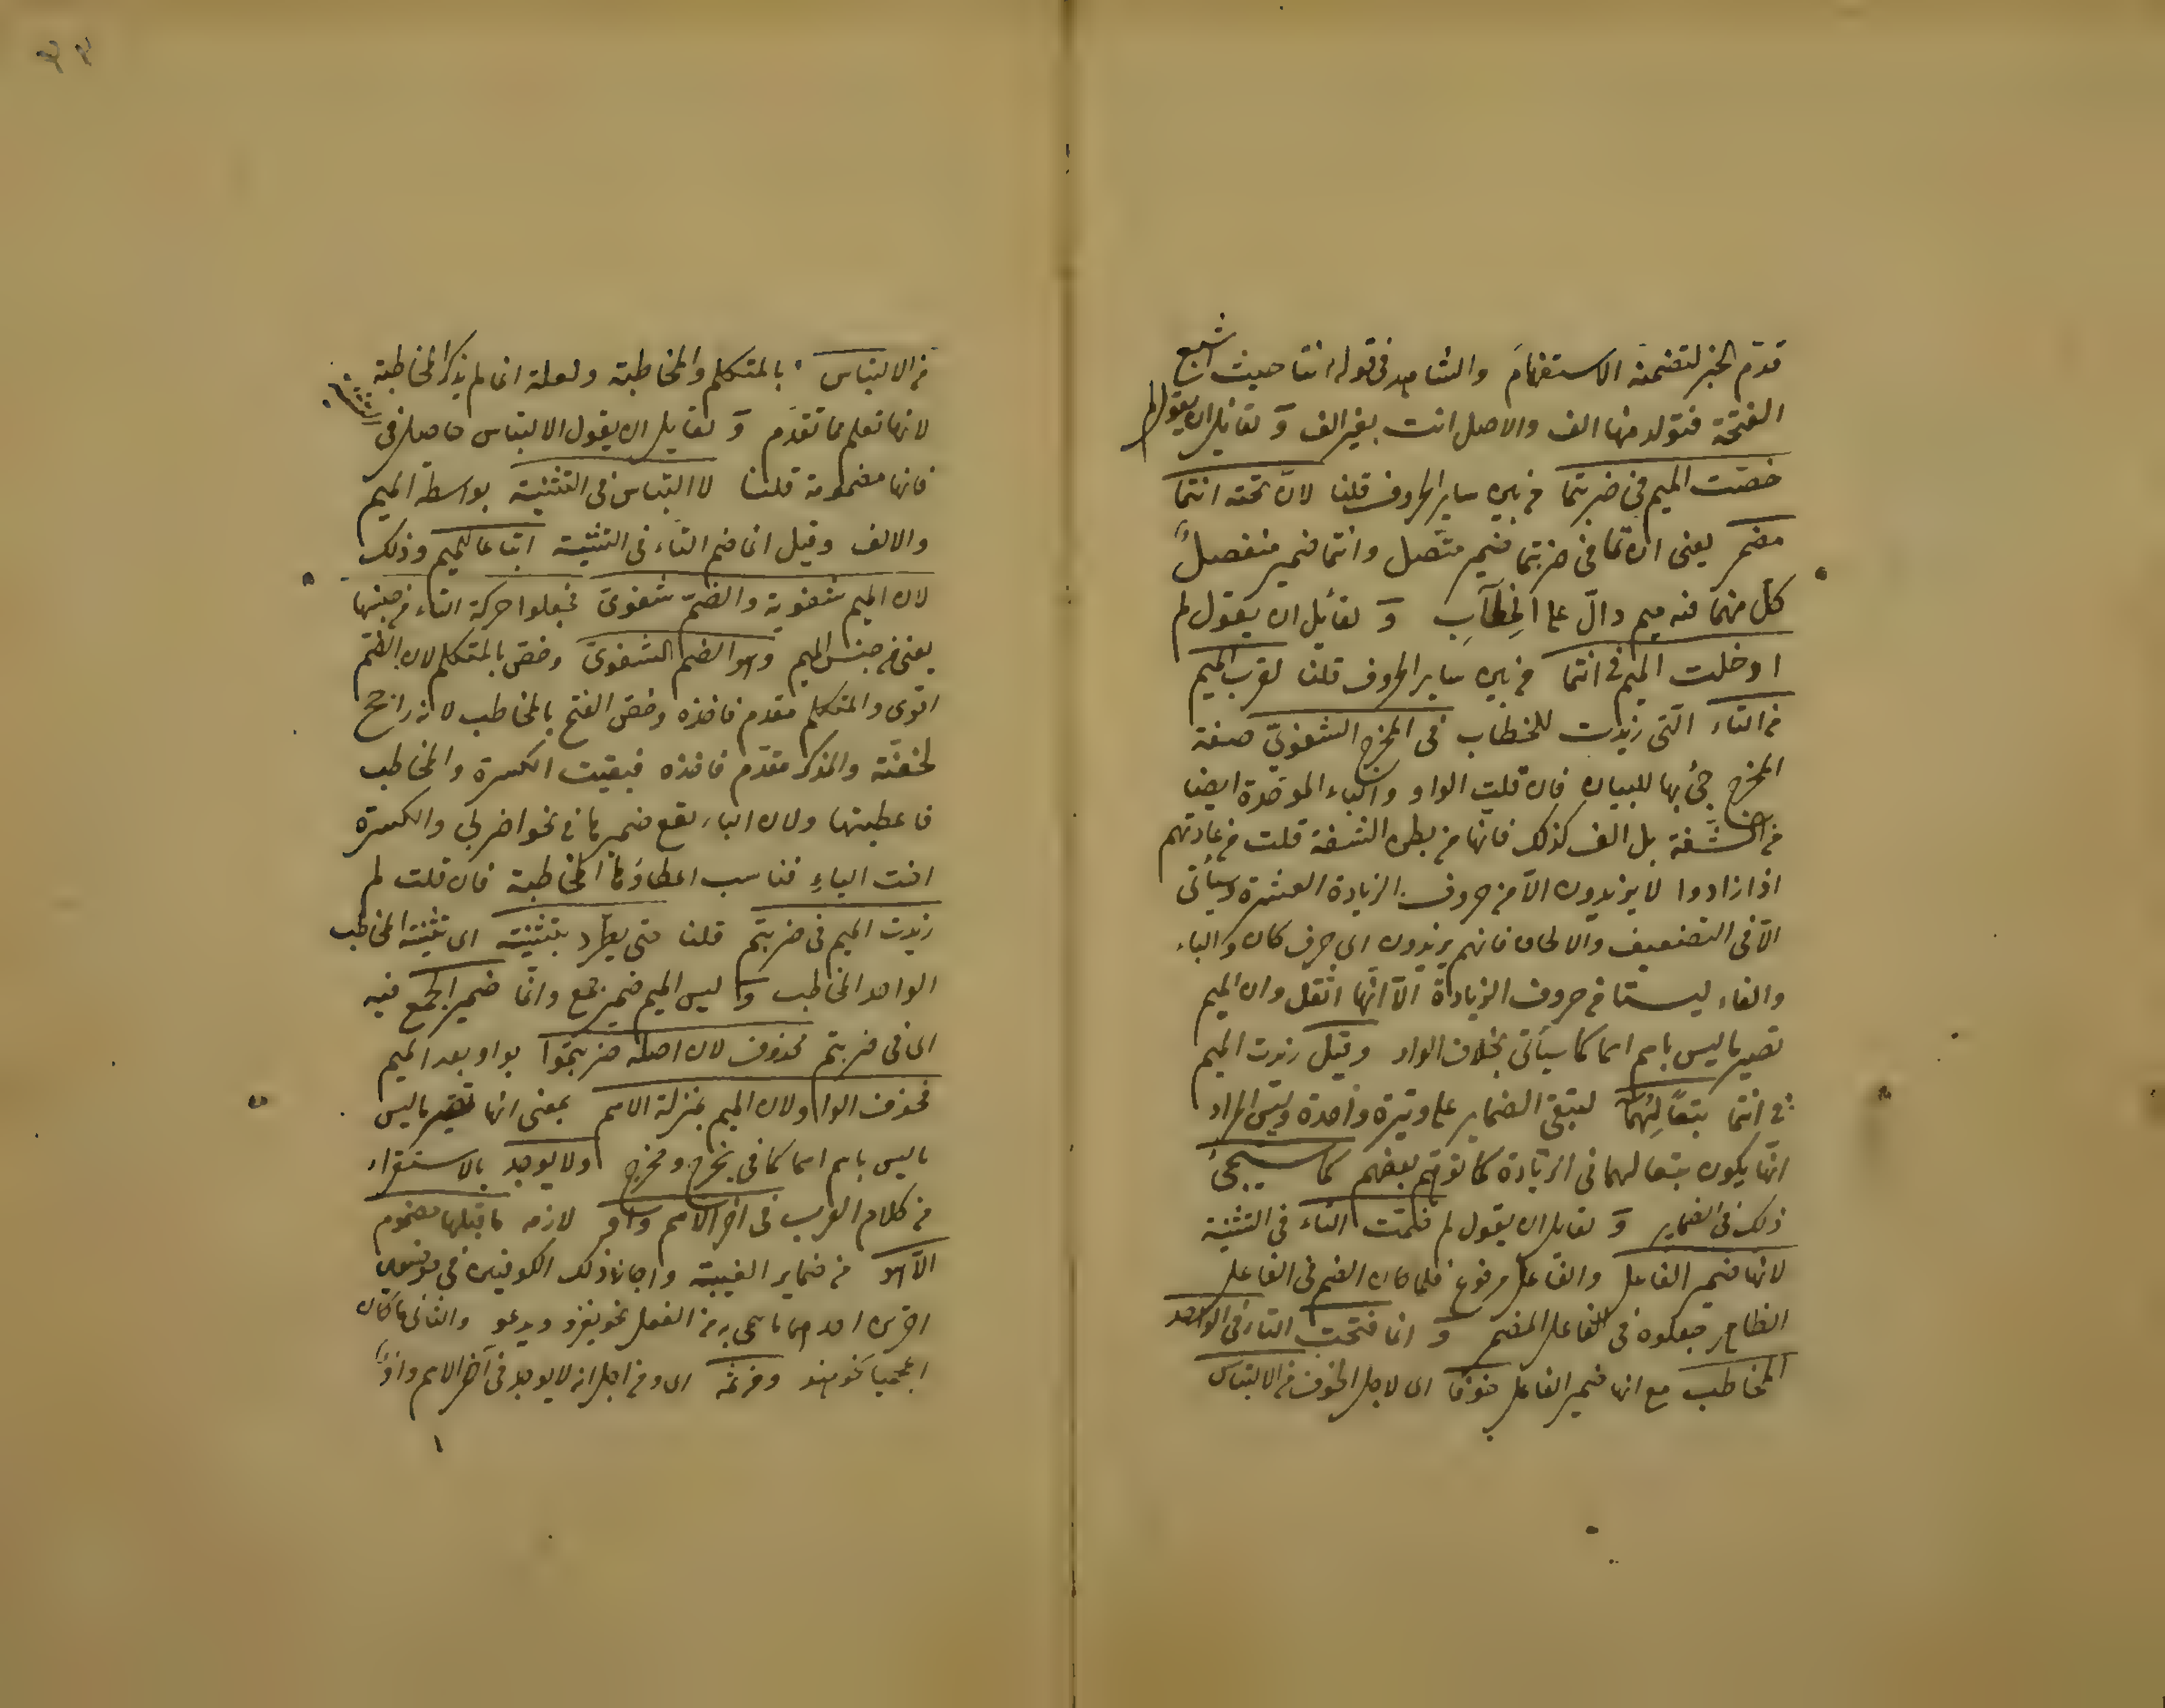 قدّم الخبر لتضمنه الاستفهامَ والشاهد فى قوله انتا حيث اشبع
الفتحة فتولد منها الف والاصل انت بغير الف وَ لقائل ان يقول لم
خصّت الميم فى ضربتما من بين ساير الحروف قلنا لانّ تحته انتما
مضمر يعنى ان تما فى ضربتما ضمير متّصل وانتما ضمير منفصل
كلّ منهما فيه ميم دالّ على الخِطَابِ وَ لقائل ان يقول لم
ادخلت الميم فى انتما من بين ساير الحروف قلنا لقرب الميم
من التاء الّتى زيدت للخطاب فى المخرج الشفوىّ صفة
المخرج جئ بها للبيان فان قلت الواو والباء الموحّدة ايضا
من الشّفة بل الف كذلك فانها من بطن الشفة قلت من عادتهم
اذا زادوا لا يزيدون الّا من حروف الزيادة العشرة وسيأتى
الّا فى التضعيف والالحاق فانهم يزيدون اى حرف كان والباء
والفاء ليستا من حروف الزيادة الّا انّها اثقل وان الميم
تصير ما ليس باسم اسما كما سيأتى بخلاف الواو وقيل زيدت الميم
فى انتما تبعًا لِهُمَا لتبقى الضماير على وتيرة واحدة وليس المراد
انّها يكون تبعا لهما فى الزيادة كما توهّم بعضهم كما سيجئُ
ذلك فى الضماير وَ لقايل ان يقول لم ضمّت التاء فى التثنية
لانها ضمير الفاعل والفاعل مرفوع فلما كان الضم فى الفاعل
الظاهر جعلوه فى الفاعل المضمر وَ انما فتحت التاء فى الواحد
المخاطب مع انها ضمير الفاعل خوفا اى لاجل الخوف من الالتباس
من الالتباس بالمتكلم والمخاطبة ولعلة انما لم يذكر المخاطبة
لانها تعلم مما تقدّم وَ لقايل ان يقول الالتباس حاصل فى
فانها مضمومة قلنا لا التباس فى التثنية بواسطة الميم
والالف وقيل انما ضم التاء فى التثنية اتباعا للميم وذلك
لان الميم شفوية والضمّ شفوىّ فجعلوا حركة التاء من جنسها
يعنى من جنس الميم وهو الضم الشفوىّ وخصّ بالمتكلم لان الضّم
اقوى والمتكلم مقدم فاخذه وخصّ الفتح بالمخاطب لانه راجح
لخفّته والمذكر مقدّم فاخذه فبقيت الكسرة والمخاطب
فاعطيتها ولان الياء يقع ضميرها فى نحو اضربى والكسرة
اخت الياءِ فناسب اعطاؤها المخاطبة فان قلت لم
زيدت الميم فى ضربتم قلنا حتى يطّرد بتثنيته اى تثنية المخاطب
الواحد المخاطب وَ ليس الميم ضمير جمع وانّما ضمير الجمع فيه
اى فى ضربتم محذوف لان اصله ضربتموا بواو بعد الميم
فحذف الواو لان الميم بمنزلة الاسم بمعنى انها تصير ما ليس
ما ليس باسم اسما كما فى يخرج ومخرج ولا يوجد بالاستقراء
من كلام العرب فى اخر الاسم واو لازمه ما قبلها مضموم
الّا هو من ضماير الغيبة واجاز ذلك الكوفيون فى موضعين
اخرين احدهما ما سمى به من الفعل نحو يغزو ويدعو والثانى ما كان
اعجميا نحو هندو ومن ثمّه اى ومن اجل انه لا يوجد فى آخر الاسم واوٌ